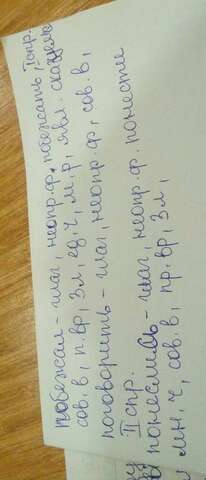 побежал - глаг, неопр.ф. побежать, II спр.
сов.в, п.вр, 3л, ед.ч, м.р, явл. сказуем
поговорить - глаг, неопр.ф, сов.в,
II спр.
понеслись - глаг, неопр.ф. понести
мн.ч, сов.в, пр.вр, 3л,